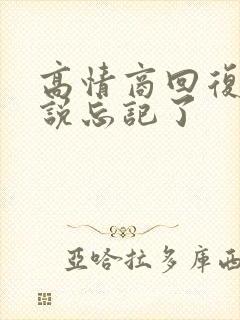 高情商回復
說忘記了
亞哈拉多庫西